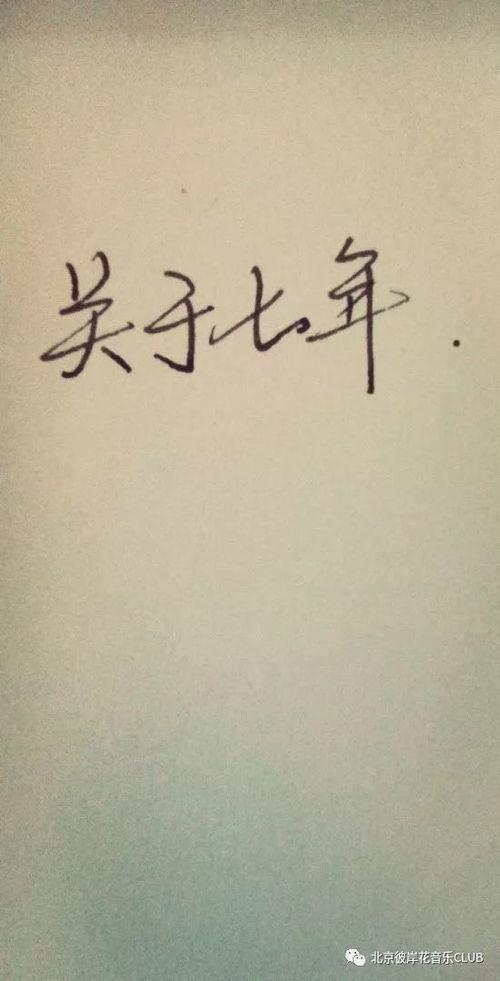 关于七年.
北京彼岸花音乐CLUB